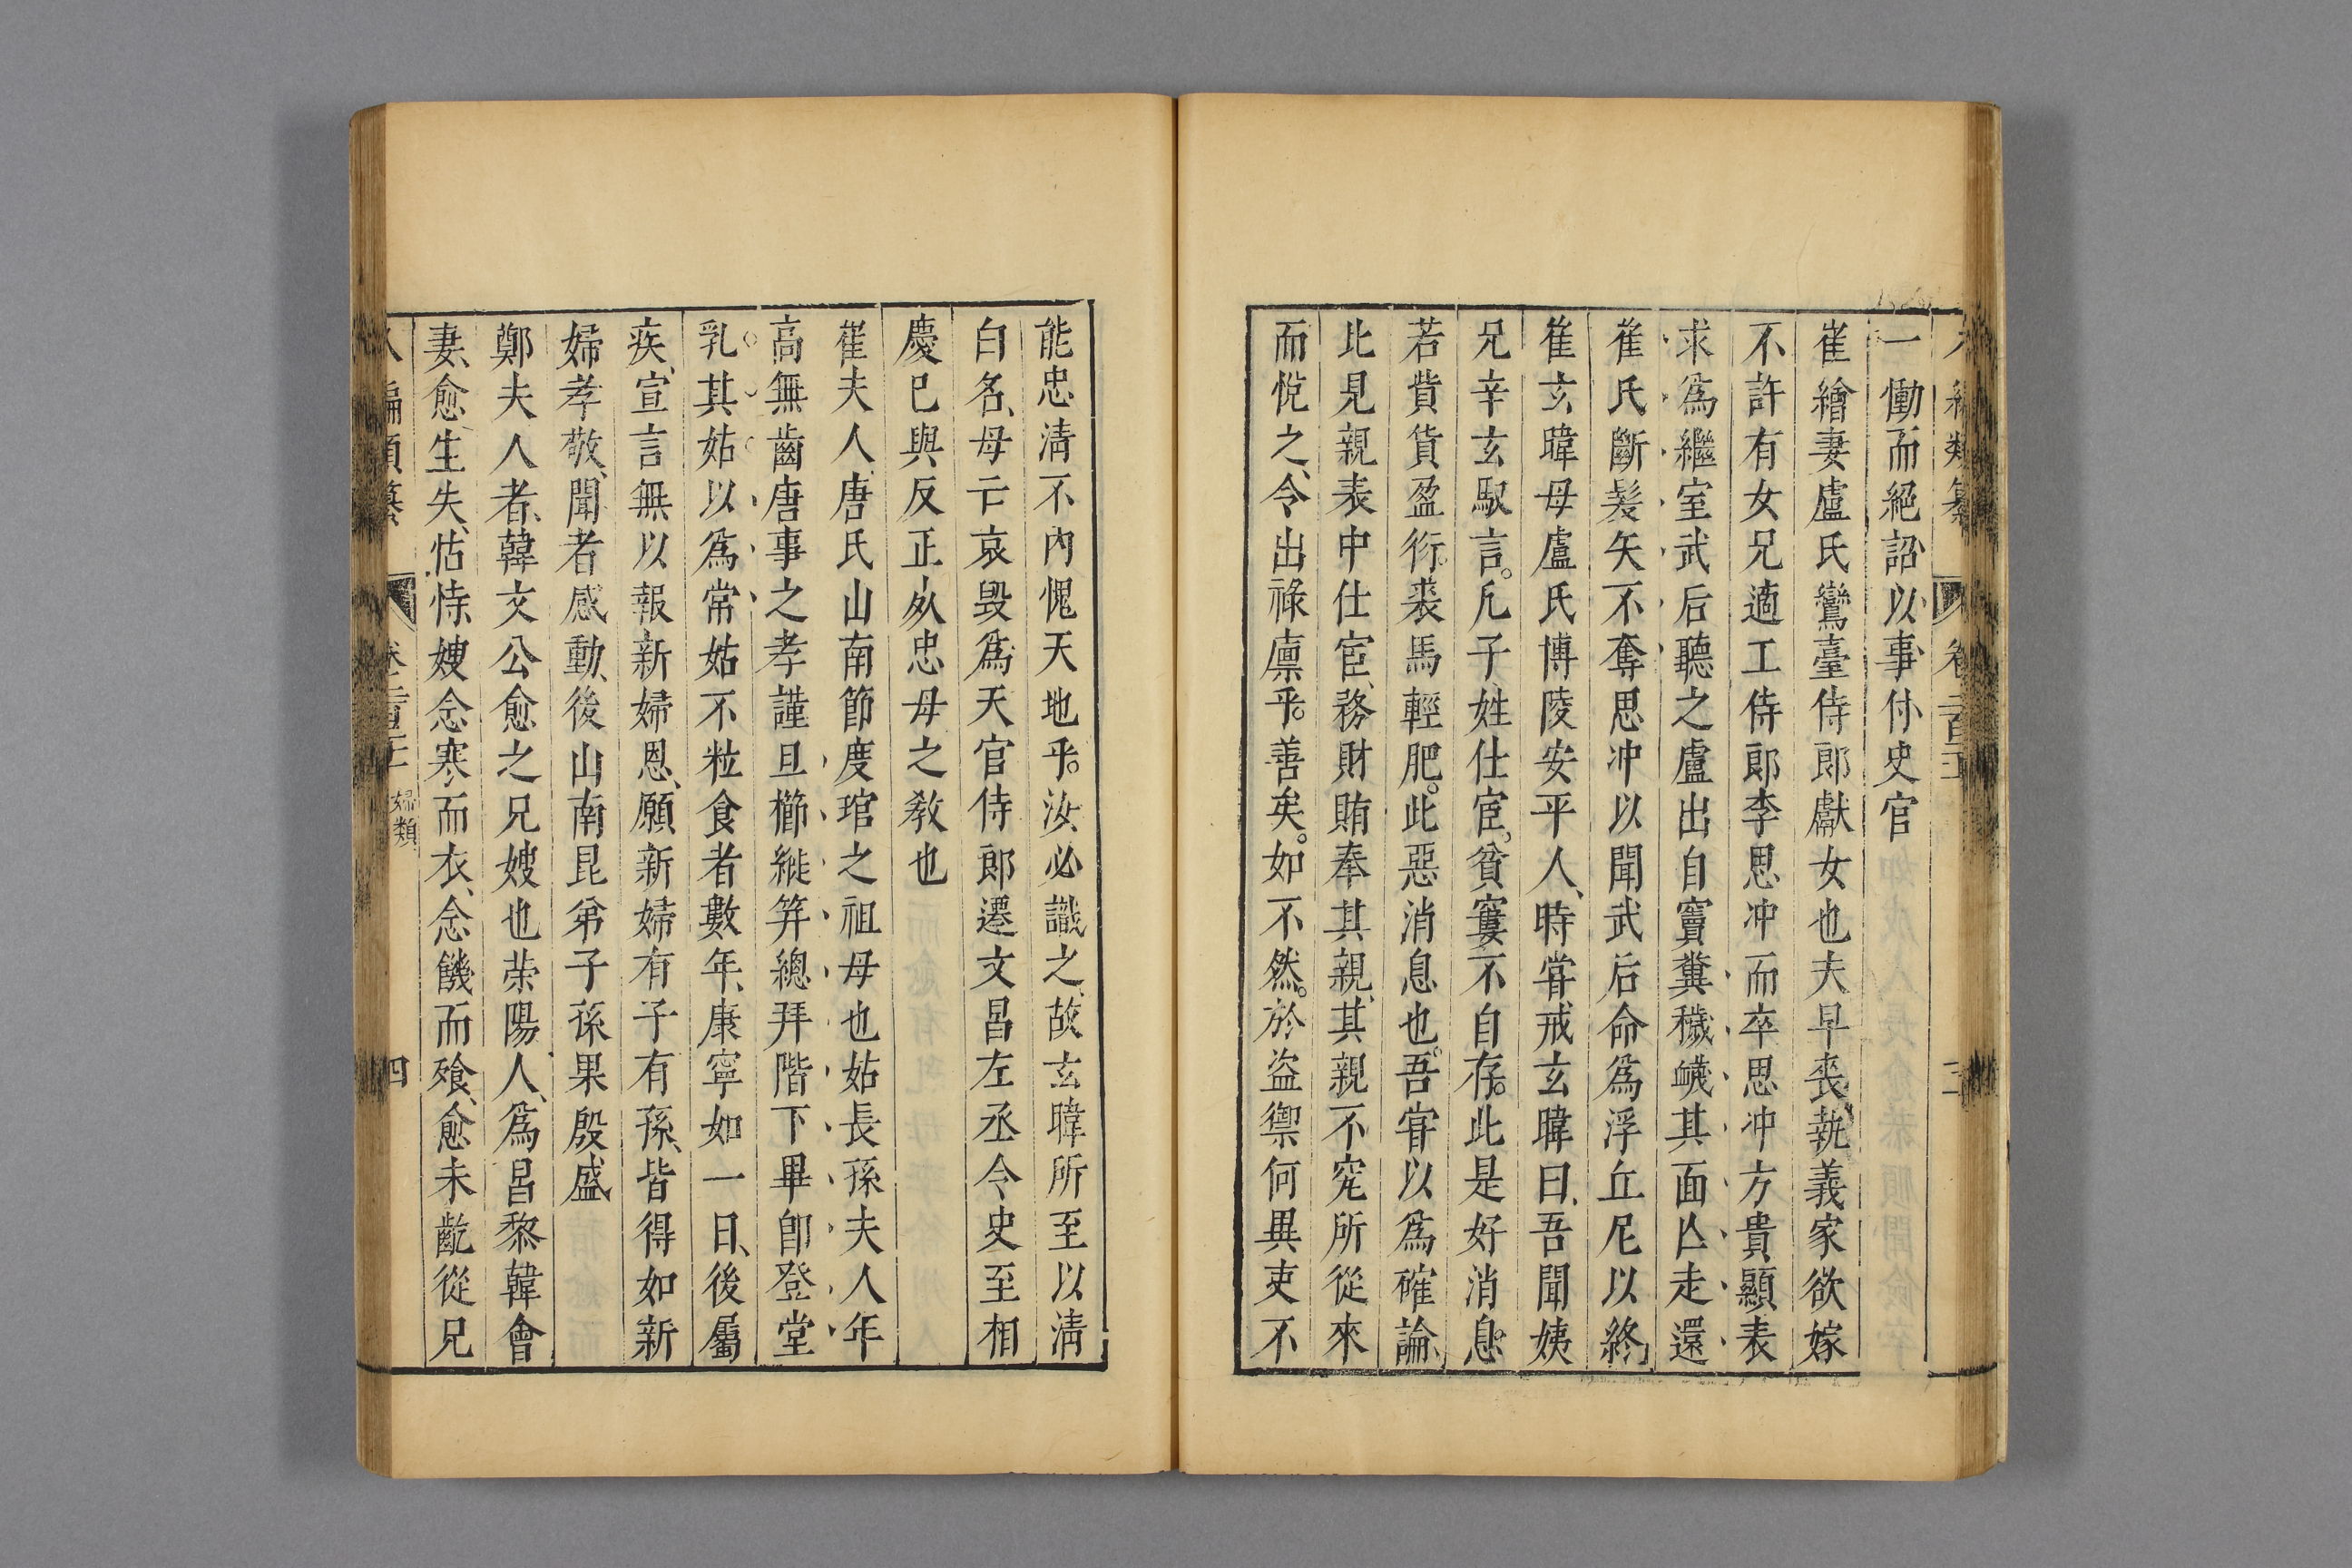 一慟而絕詔以事付史官
崔繪妻盧氏鸞臺侍郎獻女也夫早喪、執義家欲嫁
不許有女兄適工侍郎李思冲而卒思冲方貴顯表
求爲繼室武后聽之盧出自竇糞穢衊其面亾走還
崔氏斷髮矢不奪思冲以聞武后命爲浮丘尼以終
崔玄暐母盧氏博陵安平人、時嘗戒玄暐曰、吾聞姨
兄辛玄馭言。凡子姓仕宦。貧窶不自存。此是好消息。
若貲貨盈衍。裘馬輕肥。此惡消息也。吾嘗以爲確論、
比見親表中仕宦、務財賄奉其親、其親不究所從來
而悅之、令出祿廩乎。善矣。如不然。於盜禦何異吏不
能忠淸不內愧天地乎。汝必識之、故玄暐所至以淸
白名、母亡哀毀爲天官侍郎遷文昌左丞令史至相
慶已與反正㚈忠母之教也
崔夫人、唐氏山南節度琯之祖母也姑長孫夫人年
高無齒唐事之孝謹旦櫛縰笄總拜階下畢卽登堂
乳其姑以爲常姑不粒食者數年、康寧如一日、後屬
疾、宣言無以報新婦恩、願新婦有子有孫、皆得如新
婦孝敬、聞者感動、後山南昆弟子孫果殷盛
鄭夫人者、韓文公愈之兄嫂也荣陽人、爲昌黎韓會
妻、愈生失怙恃嫂念寒而衣、念饑而飧、愈未齔從兄
婦類
四